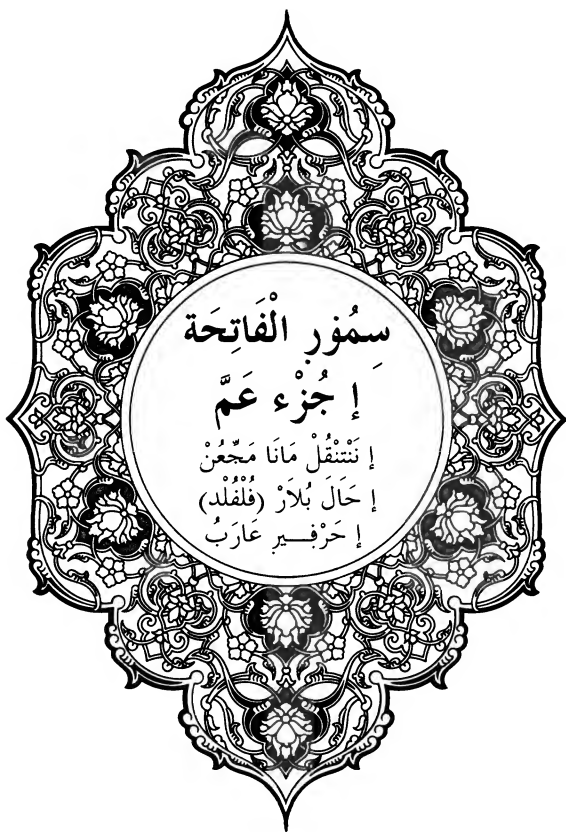 سِمُوْرٜ الْفَاتِحَة
إ جُزْء عَمَّ
إ نَنْتَنْقُلْ مَانَا مَڃَّعُنْ
إ حَالَ بُلَارْ (فُلْفُلْد)
إ حَرْفٜـيرِ عَارَبُ